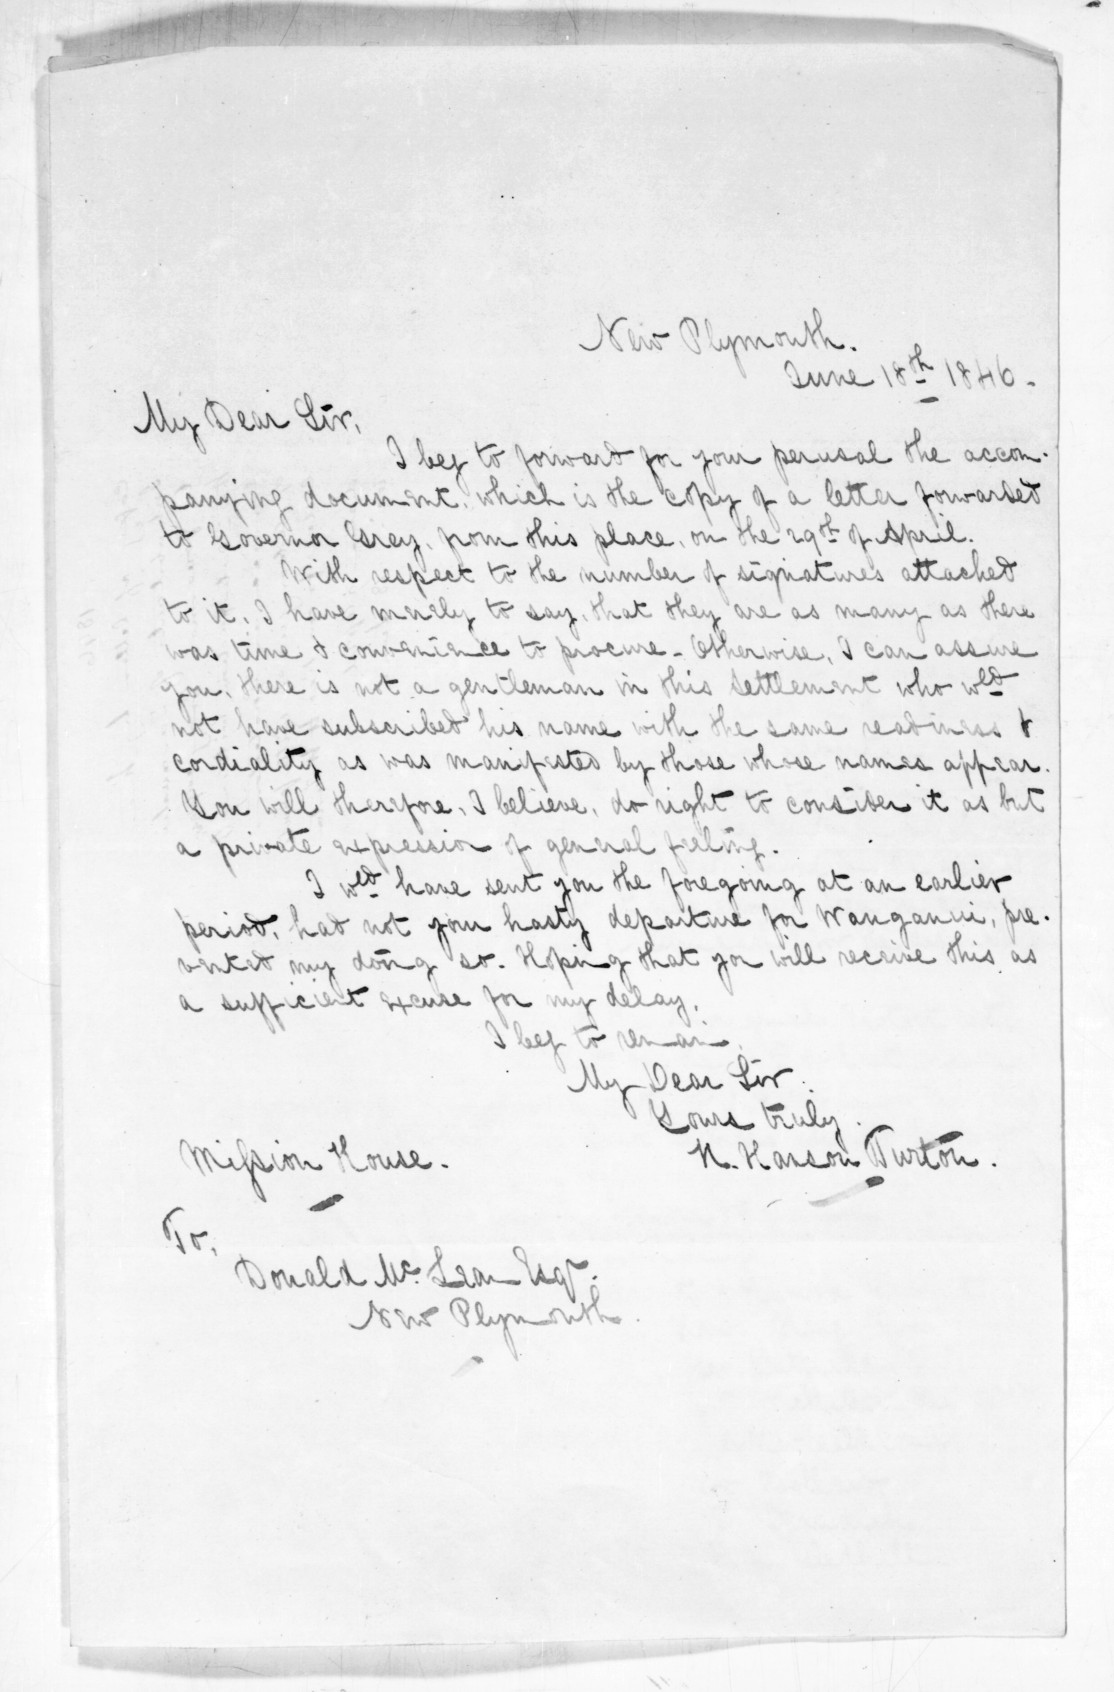 New Plymouth.
June 18th 1846.
My Dear Sir,
I beg to forward for your perusal the accom-
panying document, which is the copy of a letter forwarded
to Governor Grey, from this place, on the 29th of April.
With respect to the number of signatures attached
to it, I have merely to say, that they are as many as there
was time & convenience to procure - Otherwise, I can assure
you, there is not a gentleman in this Settlement who wed
not have subscribed his name with the same readiness &
cordiality as was manifested by those whose names appear.
You will therefore, I believe, do right to consider it as but
a private expression of general feeling.
I wed have sent you the foregoing at an earlier
period, had not your hasty departure for Wanganui, pre-
vented my doing so. Hoping that you will receive this as
a sufficient excuse for my delay,
I beg to remain,
My Dear Sir.
Yours truly.
Mission House.
H. Hanson Turton.
To,
Donald Mc. Lean Esqr.
New Plymouth.